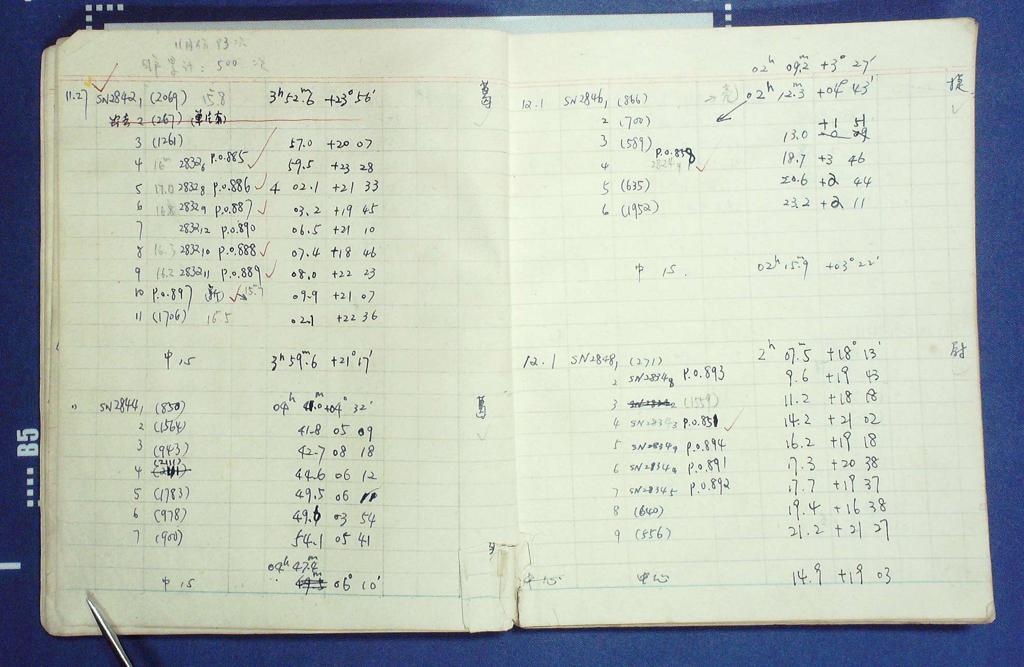 11月份 83次
累计: 500 次
11.27 SN2842, (2069) 15.8 3h 52.m6 +23° 56'
2 (267)
3 (1261) 57.0 +20 07
4 16m 28326 P.O.885 59.5 +23 28
5 17.0 28328 P.O.886 4 02.1 +21 33
6 16.8 28329 P.O.887 03.2 +19 45
7 283212 P.O.890 06.5 +21 10
8 16.3 283210 P.O.888 07.4 +18 46
9 16.2 283211 P.O.889 08.0 +22 23
10 P.O.897 (新) 15.7 09.9 +21 07
11 (1706) 16.5 02.1 +22 36
中心 3h 59.m6 +21° 17'
" SN2844, (850) 04h 41.0 +04° 32'
2 (1564) 41.8 05 09
3 (943) 42.7 08 18
4 (2111) 44.6 06 12
5 (1783) 49.5 06
6 (978) 49.6 03 54
7 (900) 54.1 05 41
04h 47.m4
中心 06° 10'
02h 09.m2 +3° 27'
12.1 SN2846, (866) 02h 12.m3 +04° 43'
2 (700)
+1 51
3 (589) 13.0
4 P.O.858 28249 18.7 +3 46
5 (635) 20.6 +2 44
6 (1952) 23.2 +2 11
中心 02h 15.m9 +03° 22'
12.1 SN2848, (271) 2h 07.m5 +18° 13' 尉
2 SN28348 P.O.893 9.6 +19 43
3 (1559) 11.2 +18 18
4 SN28343 P.O.851 14.2 +21 02
5 SN28349 P.O.894 16.2 +19 18
6 SN28344 P.O.891 17.3 +20 38
7 SN28345 P.O.892 17.7 +19 37
8 (640) 19.4 +16 38
9 (556) 21.2 +21 27
中心 14.9 +19 03
B5